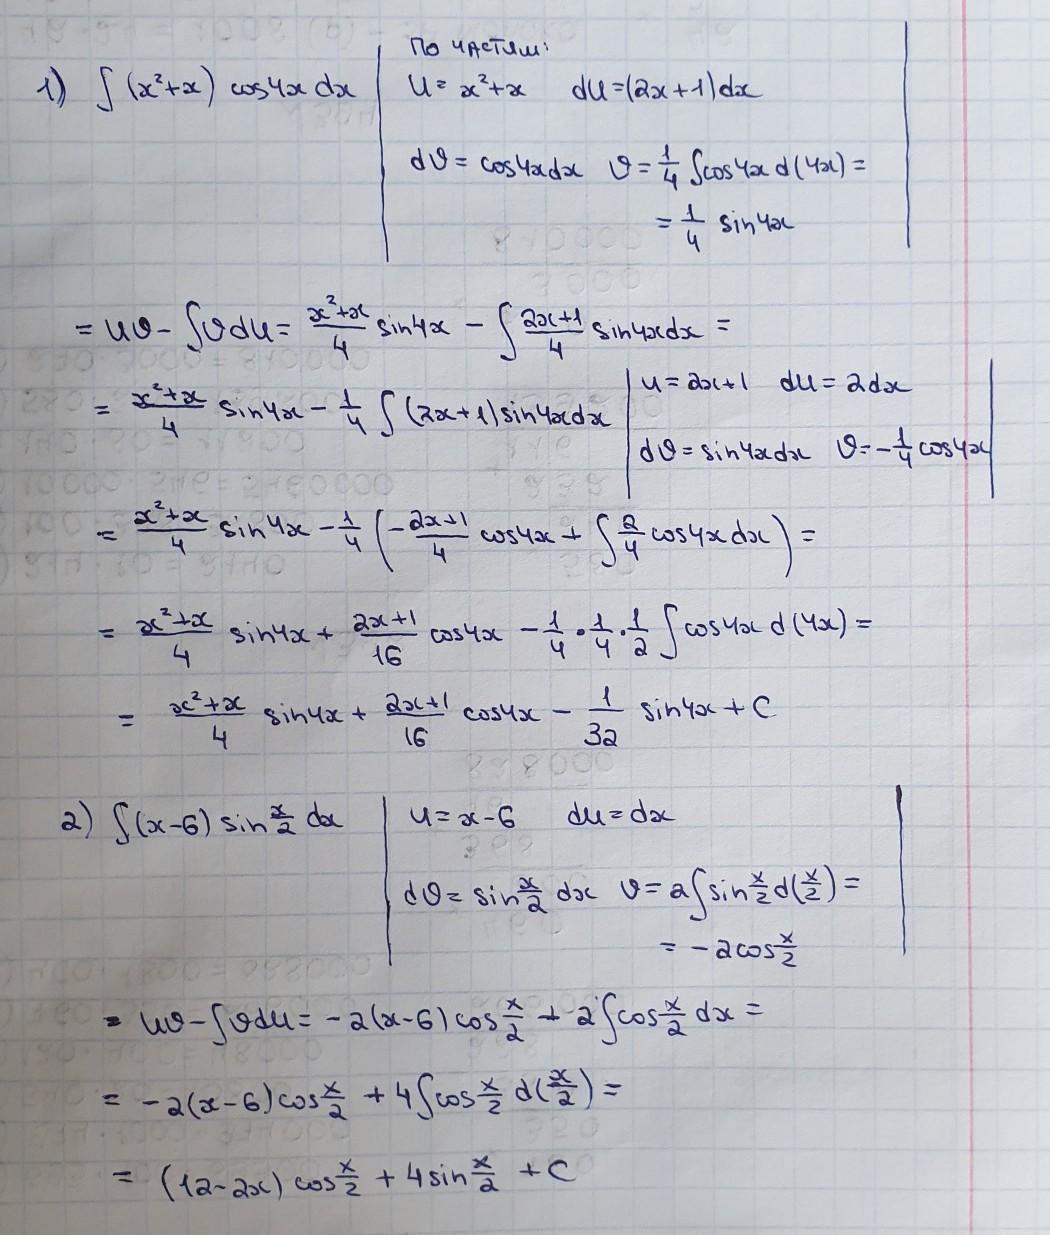 по частям:
1) ∫ (x²+x) cos4x dx | u = x²+x du=(2x+1)dx
dv = cos4xdx v = 1/4 ∫cos4x d(4x) =
= 1/4 sin4x
= uv - ∫vdu = (x²+x)/4 sin4x - ∫ (2x+1)/4 sin4xdx =
= (x²+x)/4 sin4x - 1/4 ∫ (2x+1)sin4xdx | u = 2x+1 du = 2dx
dv = sin4xdx v = -1/4 cos4x
= (x²+x)/4 sin4x - 1/4 ( -(2x+1)/4 cos4x + ∫ 2/4 cos4x dx ) =
= (x²+x)/4 sin4x + (2x+1)/16 cos4x - 1/4 · 1/4 · 1/2 ∫ cos4x d(4x) =
= (x²+x)/4 sin4x + (2x+1)/16 cos4x - 1/32 sin4x + C
2) ∫(x-6) sin x/2 dx | u = x-6 du = dx
dv = sin x/2 dx v = 2∫sin x/2 d(x/2) =
= -2cos x/2
= uv - ∫vdu = -2(x-6)cos x/2 + 2∫cos x/2 dx =
= -2(x-6)cos x/2 + 4∫cos x/2 d(x/2) =
= (12-2x) cos x/2 + 4sin x/2 + C